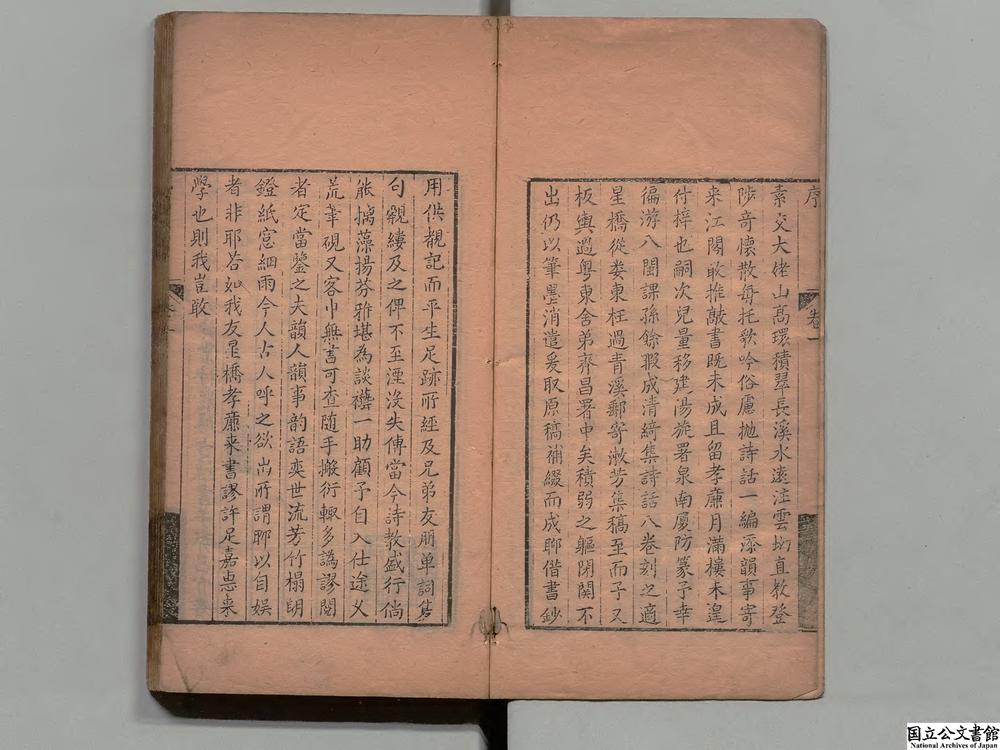 序 卷一
素交大佬山高環積翠長溪水遠注雲坳直教登
陟奇懷散每托歌吟俗慮拋詩話一編添韻事寄
来江閣敢推敲書既未成且留孝廉月滿樓未遑
付梓也嗣次兒量移建湯旋署泉南厦防篆予幸
徧游八閩課孫餘暇成清綺集詩話八卷刻之適
星橋從婁東枉過青溪郵寄漱芳集稿至而予又
板輿過粤東舍弟齊昌署中矣積弱之軀閉関不
出仍以筆墨消遣爰取原稿補綴而成聊借書鈔
用供覩記而平生足跡所經及兄弟友朋单詞隻
句覼縷及之俾不至湮没失傳當今詩教盛行倘
能摛藻揚芬雅堪為談藝一助顧予自入仕途久
荒筆硯又客巾無書可查随手搬衍輙多譌謬閱
者定當鑒之夫韻人韻事韵語奕世流芳竹榻明
鐙紙窓細雨今人古人呼之欲出所謂聊以自娱
者非耶若如我友星橋孝廉来書謬許足嘉惠来
學也則我豈敢
国立公文書館
National Archives of Japan